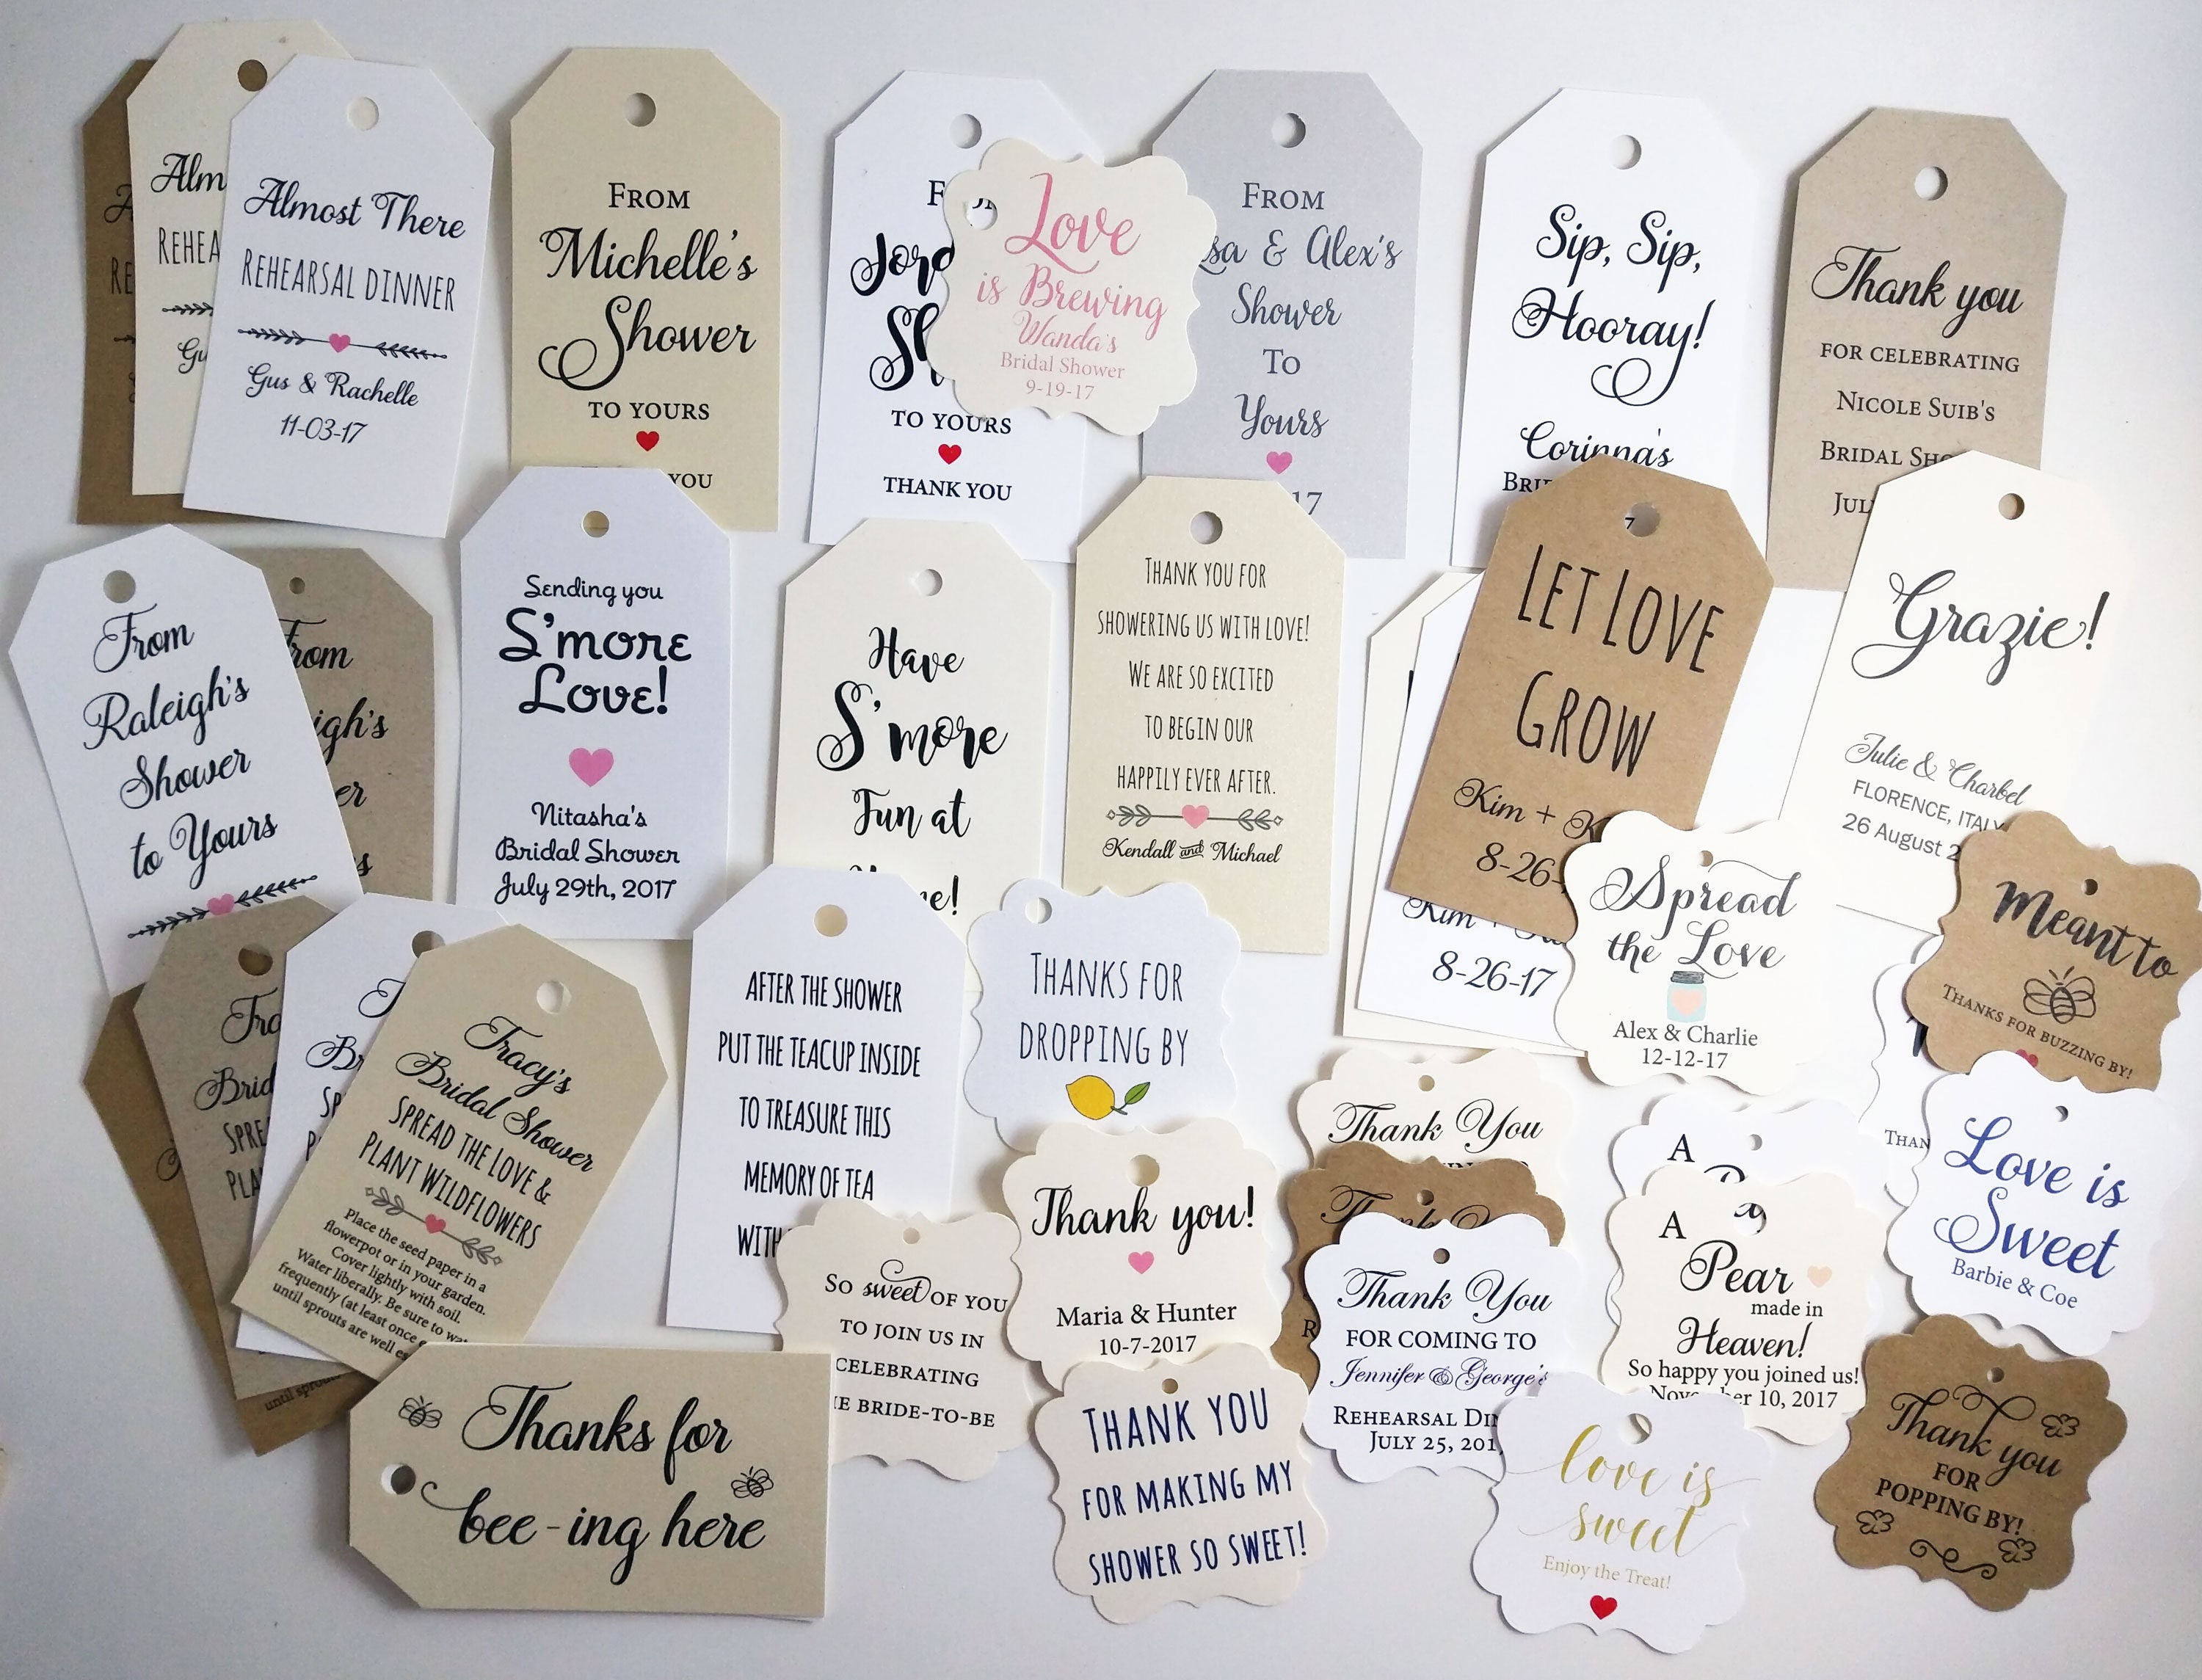 Almost There
REHEARSAL DINNER
Gus & Rachelle
11-03-17
FROM
Michelle's
Shower
TO YOURS
YOU
TO YOURS
THANK YOU
Love
is Brewing
Wanda's
Bridal Shower
9-19-17
FROM
& Alex's
Shower
To
Yours
17
Sip, Sip,
Hooray!
Corinna's
Thank you
FOR CELEBRATING
NICOLE SUIB'S
BRIDAL
From
Raleigh's
Shower
to Yours
Sending you
S'more
Love!
Nitasha's
Bridal Shower
July 29th, 2017
Have
S'more
Fun at
THANK YOU FOR
SHOWERING US WITH LOVE!
WE ARE SO EXCITED
TO BEGIN OUR
HAPPILY EVER AFTER.
Kendall and Michael
LET LOVE
GROW
Kim +
8-26-
Kim +
8-26-17
Grazie!
Julie & Charbel
FLORENCE, ITALY
26 August
Spread
the Love
Alex & Charlie
12-12-17
Meant to
THANKS FOR BUZZING BY!
Tracy's
Bridal Shower
SPREAD THE LOVE &
PLANT WILDFLOWERS
Place the seed paper in a
flowerpot or in your garden.
Cover lightly with soil.
Water liberally. Be sure to
frequently (at least once
until sprouts are well
AFTER THE SHOWER
PUT THE TEACUP INSIDE
TO TREASURE THIS
MEMORY OF TEA
WITH
THANKS FOR
DROPPING BY
Thank you!
Maria & Hunter
10-7-2017
Thank You
Thank You
FOR COMING TO
Jennifer & George's
REHEARSAL
JULY 25,
A
A
Pear
made in
Heaven!
So happy you joined us!
10, 2017
Love is
Sweet
Barbie & Coe
SO sweet OF YOU
TO JOIN US IN
CELEBRATING
BRIDE-TO-BE
THANK YOU
FOR MAKING MY
SHOWER SO SWEET!
love is
sweet
Enjoy the Treat!
Thank you
FOR
POPPING BY!
Thanks for
bee-ing here